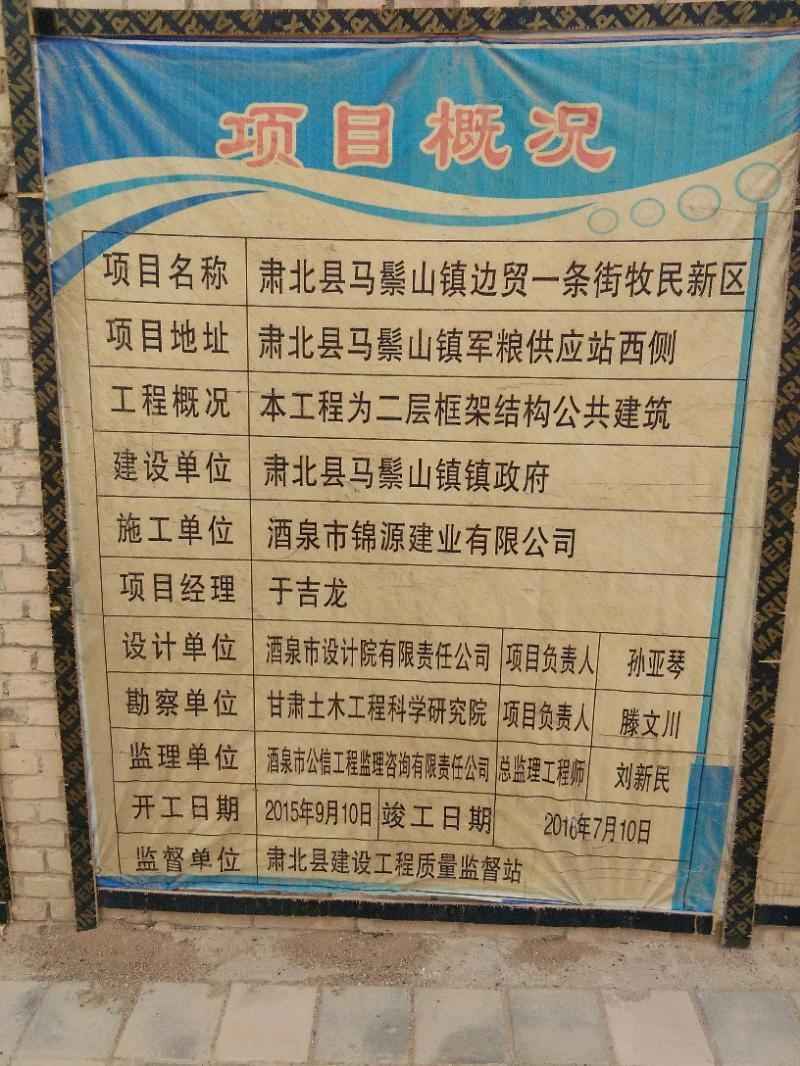 项目概况
项目名称 肃北县马鬃山镇边贸一条街牧民新区
项目地址 肃北县马鬃山镇军粮供应站西侧
工程概况 本工程为二层框架结构公共建筑
建设单位 肃北县马鬃山镇镇政府
施工单位 酒泉市锦源建业有限公司
项目经理 于吉龙
设计单位 酒泉市设计院有限责任公司 项目负责人 孙亚琴
勘察单位 甘肃土木工程科学研究院 项目负责人 滕文川
监理单位 酒泉市公信工程监理咨询有限责任公司 总监理工程师 刘新民
开工日期 2015年9月10日 竣工日期 2016年7月10日
监督单位 肃北县建设工程质量监督站